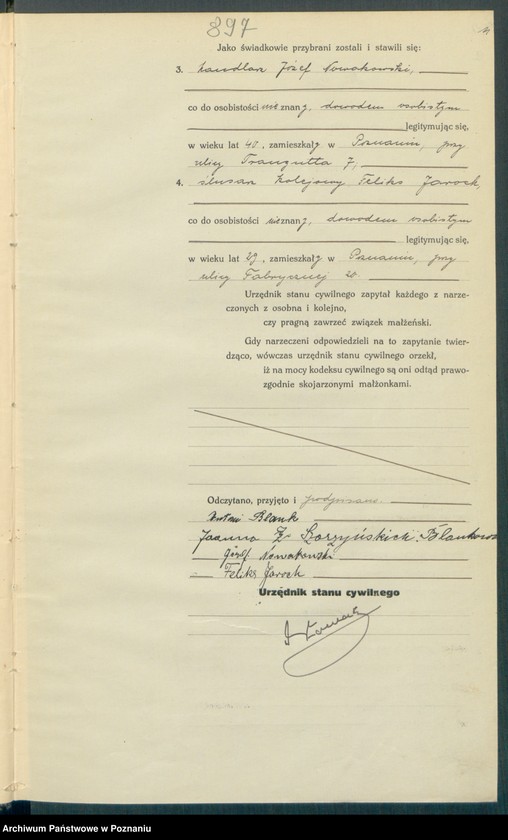 897
Jako świadkowie przybrani zostali i stawili się:
3. handlarz Józef Nowakowski,
co do osobistości nieznany, dowodem osobistym
legitymując się,
w wieku lat 40, zamieszkały w Poznaniu, przy
ulicy Traugutta 7,
4. ślusarz kolejowy Feliks Jaroch,
co do osobistości nieznany, dowodem osobistym
legitymując się,
w wieku lat 29, zamieszkały w Poznaniu, przy
ulicy Fabrycznej 20.
Urzędnik stanu cywilnego zapytał każdego z narze-
czonych z osobna i kolejno,
czy pragną zawrzeć związek małżeński.
Gdy narzeczeni odpowiedzieli na to zapytanie twier-
dząco, wówczas urzędnik stanu cywilnego orzekł,
iż na mocy kodeksu cywilnego są oni odtąd prawo-
zgodnie skojarzonymi małżonkami.
Odczytano, przyjęto i podpisano.
Blank
Joanna Z Skorzyńskich Blankowa
Józef Nowakowski
Feliks Jaroch
Urzędnik stanu cywilnego
Archiwum Państwowe w Poznaniu